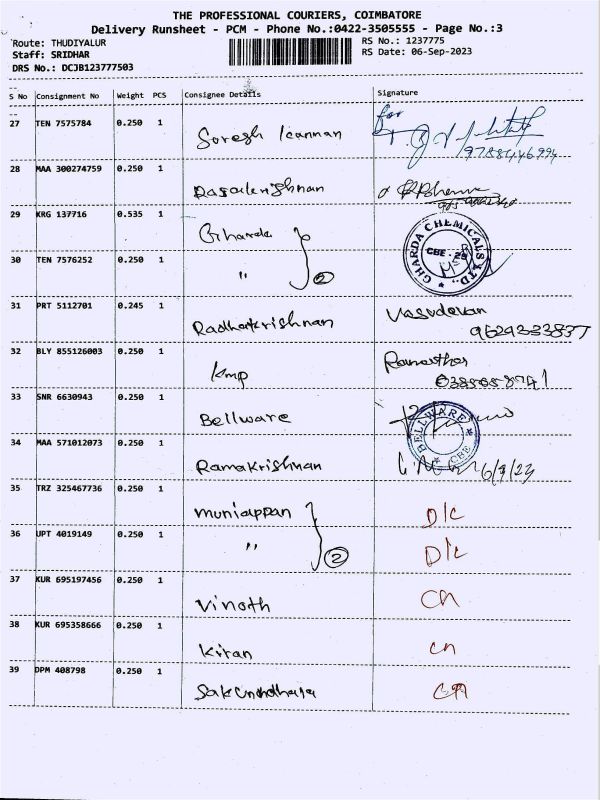 THE PROFESSIONAL COURIERS, COIMBATORE
Delivery Runsheet - PCM - Phone No.:0422-3505555 - Page No.:3
Route: THUDIYALUR
Staff: SRIDHAR
DRS No.: DCJB123777503
RS No.: 1237775
RS Date: 06-Sep-2023
S No Consignment No Weight PCS Consignee Details Signature
27 TEN 7575784 0.250 1 Suresh Kannan for
9788446994
28 MAA 300274759 0.250 1
29 KRG 137716 0.535 1 Gharda GHARDA CHEMICALS LTD., CBE - 29
30 TEN 7576252 0.250 1 " 2
31 PRT 5112701 0.245 1 Radhakrishnan Vasudevan
9629333837
32 BLY 855126003 0.250 1 kmp
33 SNR 6630943 0.250 1 Bellware BELLWARE CBE
34 MAA 571012073 0.250 1 Ramakrishnan 6/9/23
35 TRZ 325467736 0.250 1 muniappan D/C
36 UPT 4019149 0.250 1 " 2 D/C
37 KUR 695197456 0.250 1 Vinoth cn
38 KUR 695358666 0.250 1 Kiran cn
39 DPM 408798 0.250 1 cn